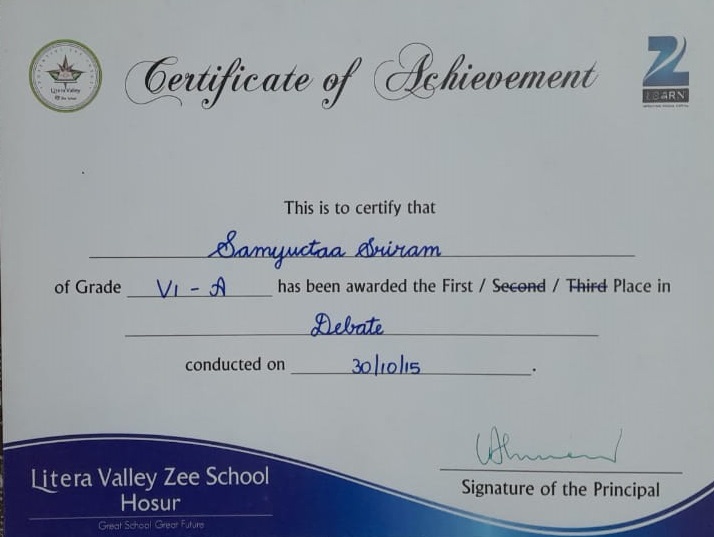 Certificate of Achievement
Litera Valley
Z
LEARN
This is to certify that
Samyuctaa Sriram
of Grade VI - A has been awarded the First / Second / Third Place in
Debate
conducted on 30/10/15.
Signature of the Principal
Litera Valley Zee School
Hosur
Great School Great Future